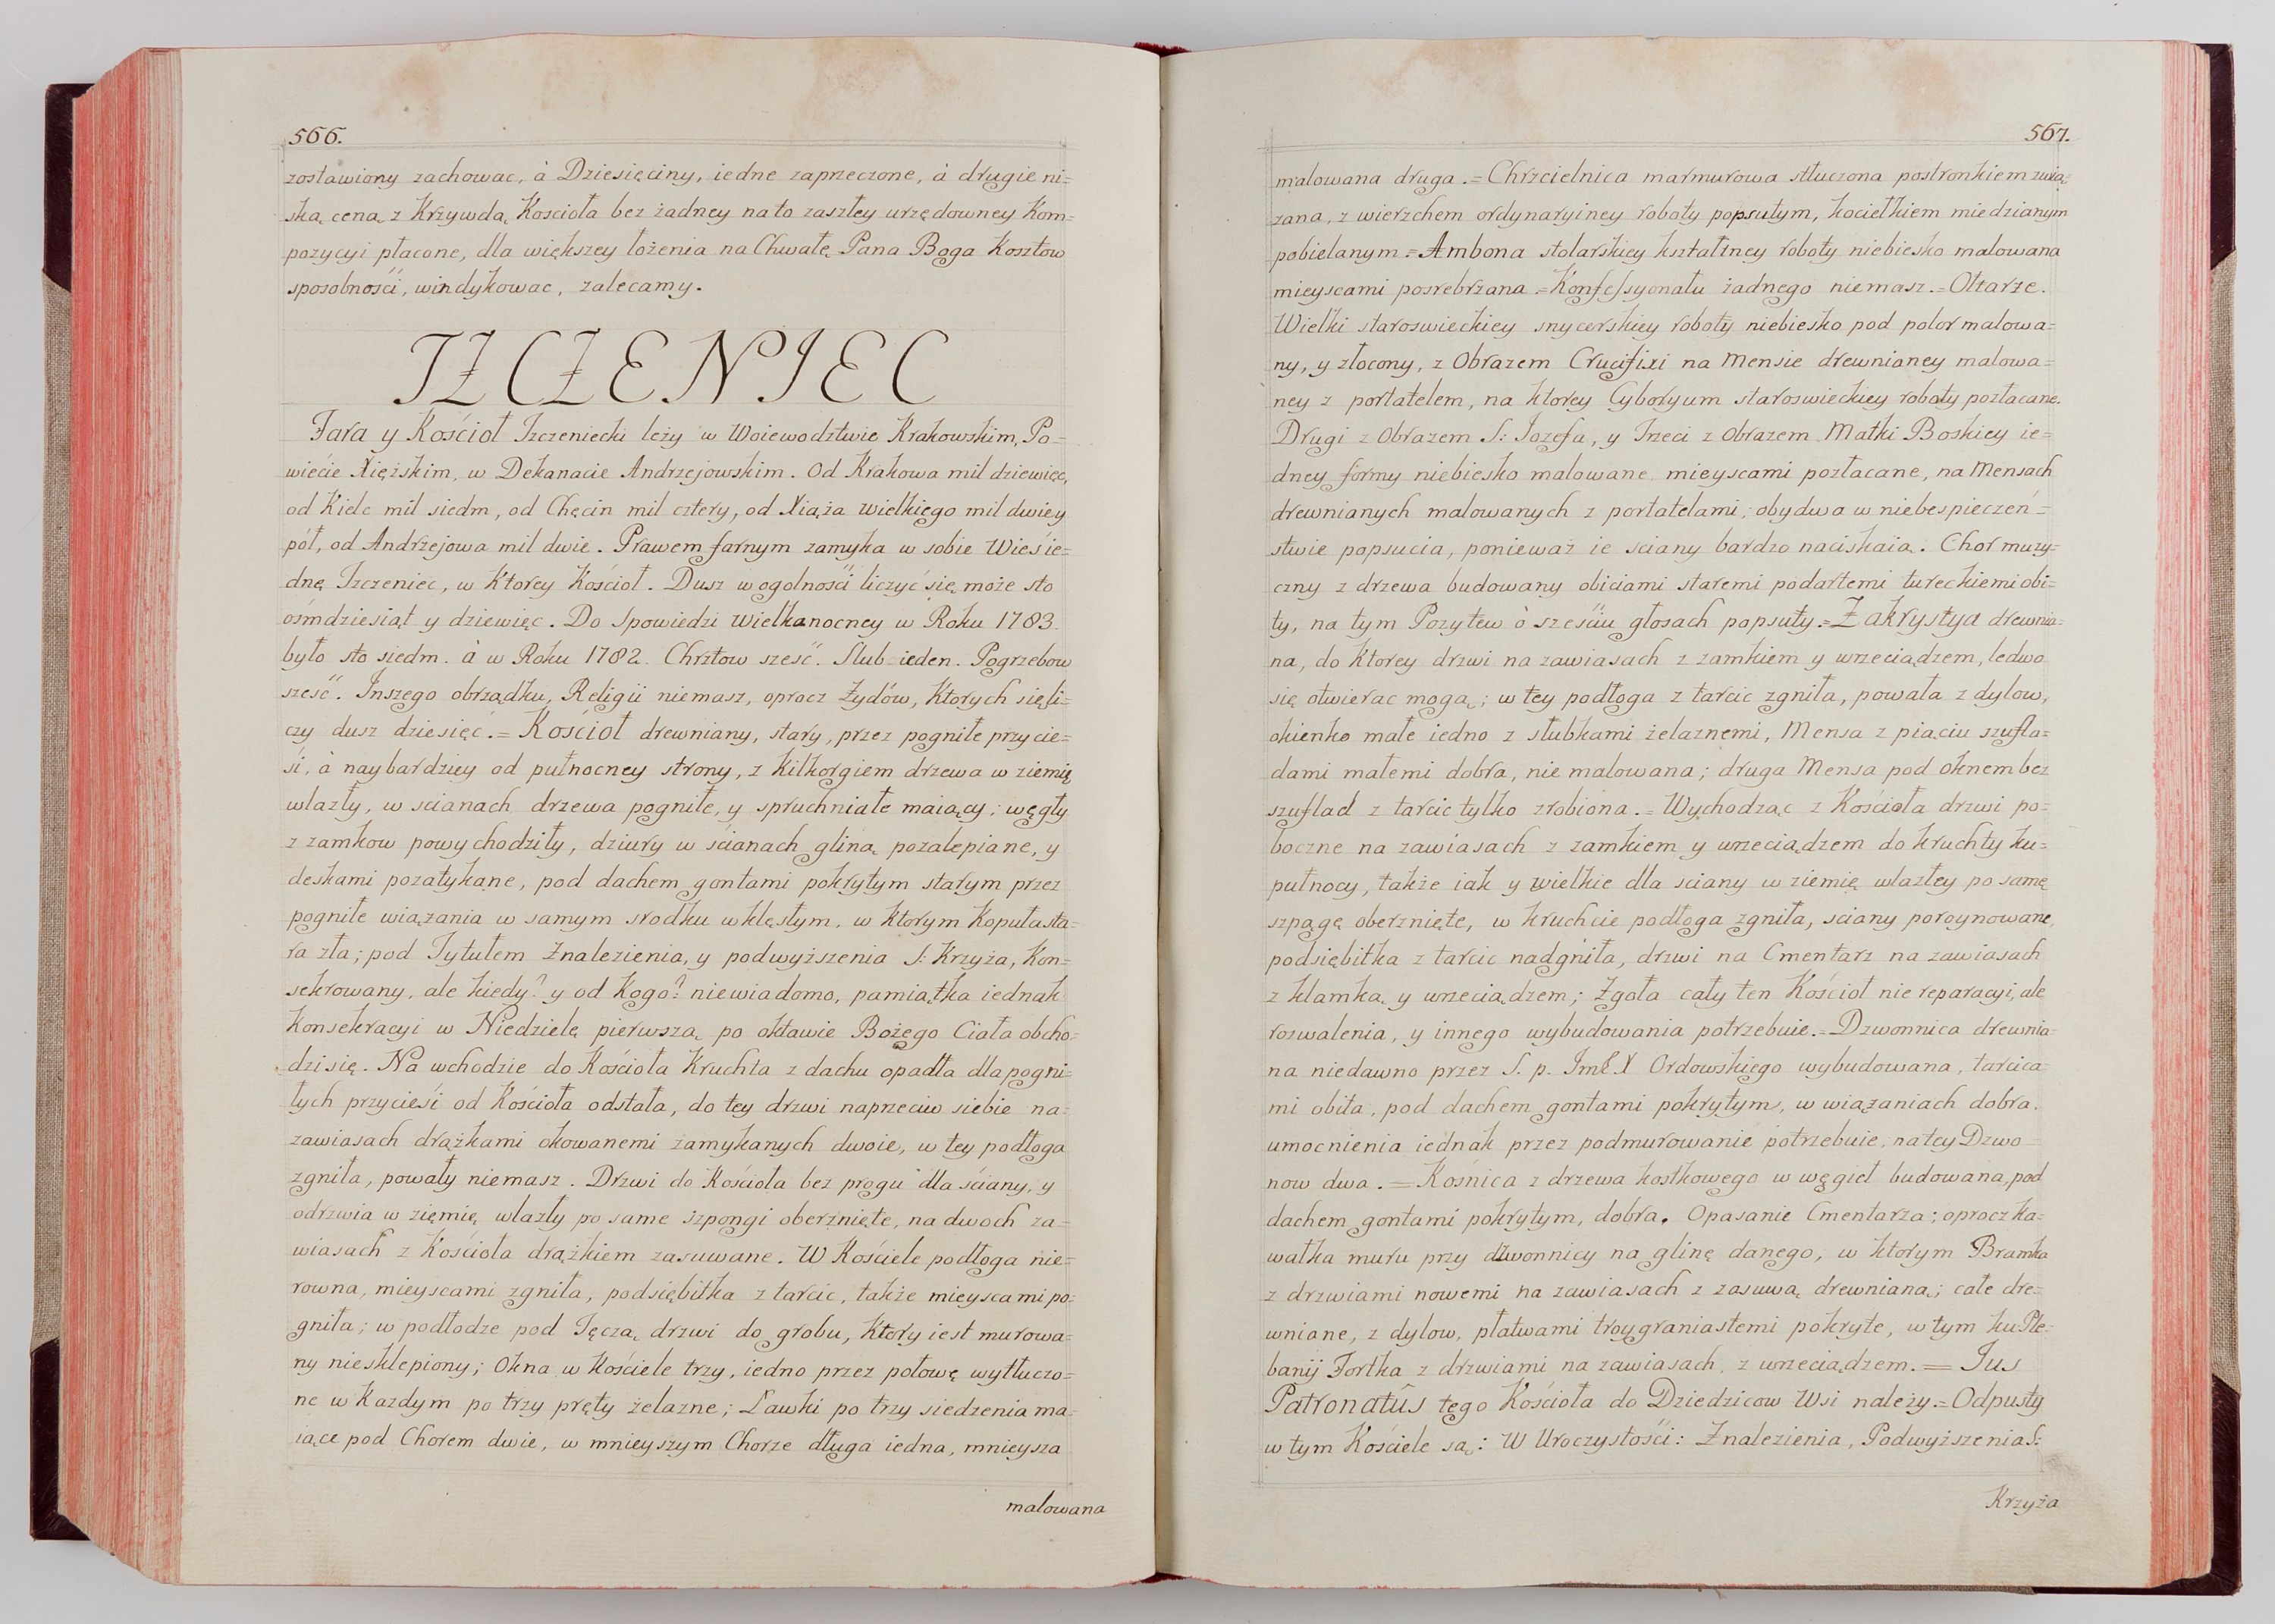 566.
zostawiony zachowac, à Dziesięciny, iedne zaprzeczone, à drugie ni=
ską ceną z Krzywdą Koscioła bez żadney na to zaszłey urzędowney Kom=
pozycyi płacone, dla większey łożenia na Chwałę Pana Boga Kosztow
sposobności, windykowac, zalecamy.
TZCZENIEC
Fara y Kościoł Tzczeniecki leży w Woiewodztwie Krakowskim, Po=
wiećie Xięźskim, w Dekanacie Andrzejowskim. Od Krakowa mil dziewięc,
od Kielc mil siedm, od Chęcin mil cztery, od Xiąża wielkiego mil dwie y
púł, od Andrzejowa mil dwie. Prawem farnym zamyka w sobie Wieś ie=
dnę Tzczeniec, w Ktorey Kościoł. Dusz w ogolności liczyć się może sto
ośmdziesiąt y dziewięc. Do Spowiedzi wielkanocney w Roku 1783.
było sto siedm. à w Roku 1782. Chrztow sześć. Slub ieden. Pogrzebow
sześć. Inszego obrządku, Religii niemasz, oprocz Żydów, Ktorych się li=
czy dusz dziesięć. = Kościoł drewniany, stary, przez pogniłe przycie=
śi, à naybardziey od pułnocney strony, z Kilkorgiem drzewa w ziemię
wlazły, w scianach drzewa pogniłe, y spruchniałe maiący; węgły
z zamkow powychodziły, dziury w ścianach gliną pozalepiane, y
deskami pozatykane, pod dachem gontami pokrytym starym przez
pogniłe wiązania w samym srodku wklęsłym, w ktorym Kopuła sta=
ra zła; pod Tytułem Znalezienia, y podwyższenia S: Krzyża, Kon=
sekrowany, ale kiedy? y od Kogo? niewiadomo, pamiątka iednak
Konsekracyi w Niedzielę pierwszą po oktawie Bożego Ciała obcho=
dzi się. Na wchodzie do Kościoła Kruchta z dachu opadła dla pogni=
łych przycieśi od Kościoła odstała, do tey drzwi naprzeciw siebie na=
zawiasach drążkami okowanemi zamykanych dwoie, w tey podłoga
zgniła, powały niemasz. Drzwi do Kościoła bez progu dla ściany, y
odrzwia w ziemię wlazły po same szpongi oberznięte, na dwoch za=
wiasach z Kościoła drążkiem zasuwane. W Kościele podłoga nie=
rowna, mieyscami zgniła, podsiębitka z tarcic, także mieyscami po=
gniła; w podłodze pod Tęczą drzwi do grobu, Ktory iest murowa=
ny niesklepiony; Okna w Kościele trzy, iedno przez połowę wytłuczo=
ne w Kazdym po trzy pręty żelazne; Ławki po trzy siedzenia ma=
iące pod Chorem dwie, w mnieyszym Chorze długa iedna, mnieysza
malowana
567.
malowana druga. = Chrzcielnica marmurowa stłuczona postronkiem zwią
zana, z wierzchem ordynaryiney roboty popsutym, kociełkiem miedzianym
pobielanym = Ambona stolarskiey kształtney roboty niebiesko malowana
mieyscami posrebrzana = Konfessyonału żadnego niemasz. = Ołtarze.
Wielki staroswieckiey snycerskiey roboty niebiesko pod polor malowa=
ny, y złocony, z Obrazem Crucifixi na Mensie drewnianey malowa=
ney z portatelem, na ktorey Cyboryum staroswieckiey roboty pozłacane.
Drugi z Obrazem S: Jozefa, y Trzeci z Obrazem Matki Boskiey ie=
dney formy niebiesko malowane mieyscami pozłacane, na Mensach
drewnianych malowanych z portatelami; obydwa w niebespieczeń=
stwie popsucia, ponieważ ie sciany bardzo naciskaią. Chor muzy=
czny z drzewa budowany obiciami staremi podartemi tureckiemi obi=
ty, na tym Pozytew ò sześciu głosach popsuty. = Zakrystya drewnia=
na, do Ktorey drzwi na zawiasach z zamkiem y wrzeciądzem, ledwo
się otwierac mogą; w tey podłoga z tarcic zgniła, powała z dylow,
okienko małe iedno z słubkami żelaznemi, Mensa z piąciu szufla=
dami małemi dobra, nie malowana; druga Mensa pod oknem bez
szuflad z tarcic tylko zrobiona. = Wychodząc z Kościoła drzwi po=
boczne na zawiasach z zamkiem y wrzeciądzem do kruchty ku=
pułnocy, także iak y wielkie dla sciany w ziemię wlazłey po samę
szpągę oberznięte, w kruchcie podłoga zgniła, sciany poroynowane,
podsiębitka z tarcic nadgniła, drzwi na Cmentarz na zawiasach
z klamką y wrzeciądzem; Zgoła cały ten Kościoł nie reparacyi, ale
rozwalenia, y innego wybudowania potrzebuie. = Dzwonnica drewnia=
na niedawno przez S. p. ImCX Ordowskiego wybudowana, tarcica=
mi obita, pod dachem gontami pokrytym, w wiązaniach dobra,
umocnienia iednak przez podmurowanie potrzebuie, na tey Dzwo=
now dwa. = Kośnica z drzewa kostkowego w węgieł budowana, pod
dachem gontami pokrytym, dobra. Opasanie Cmentarza; oprocz ka=
wałka muru przy dzwonnicy na glinę danego, w ktorym Bramka
z drzwiami nowemi na zawiasach z zasuwą drewnianą; całe dre=
wniane, z dylow, płatwami troygraniastemi pokryte, w tym ku Ple=
banij Fortka z drzwiami na zawiasach, z wrzeciądzem. = Jus
Patronatûs tego Kościoła do Dziedzicow Wsi należy. = Odpusty
w tym Kościele są: W Uroczystości: Znalezienia, Podwyższenia S:
Krzyża